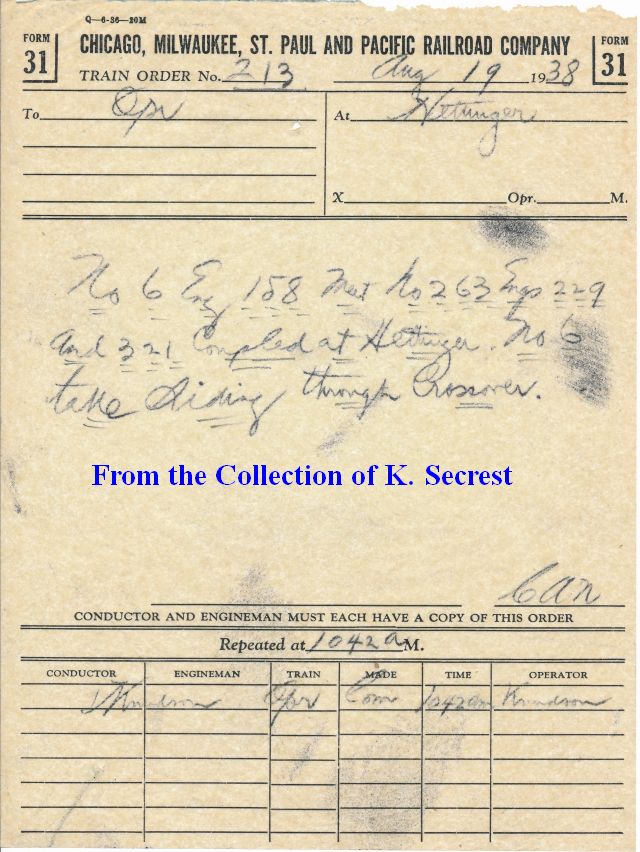 Q—6-36—20M
FORM 31
CHICAGO, MILWAUKEE, ST. PAUL AND PACIFIC RAILROAD COMPANY
FORM 31
TRAIN ORDER No. 213 Aug 19 1938
To Opr
At Hettinger
X Opr. M.
No 6 Eng 158 Meet No 263 Engs 229
And 321 Coupled at Hettinger. No 6
take Siding through Crossover.
From the Collection of K. Secrest
CAN
CONDUCTOR AND ENGINEMAN MUST EACH HAVE A COPY OF THIS ORDER
Repeated at 1042 a M.
CONDUCTOR ENGINEMAN TRAIN MADE TIME OPERATOR
Knudson Opr Com 1042am Knudson